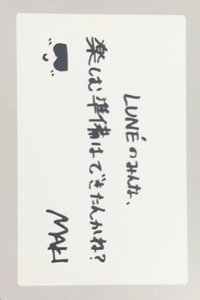 LUNÉのみんな、
楽しむ準備はできたんかね？
MAKI